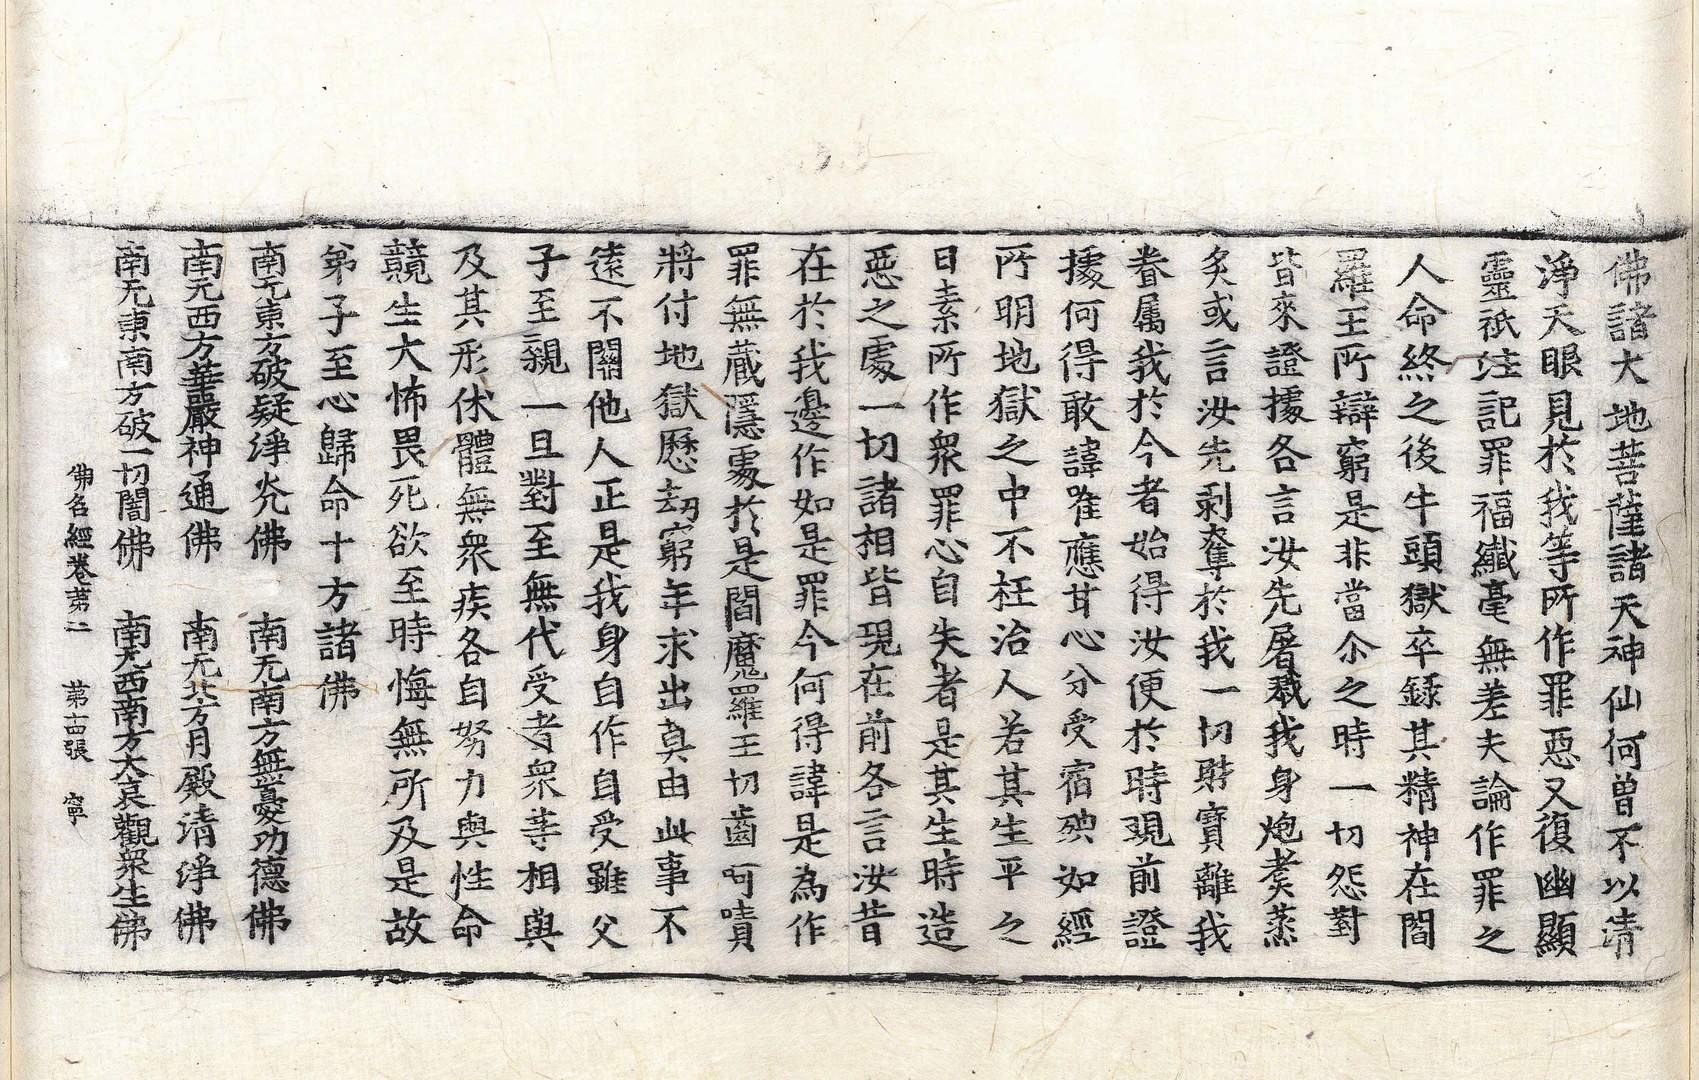 佛諸大地菩薩諸天神仙何曾不以清
淨天眼見於我等所作罪惡又復幽顯
靈祇注記罪福纖毫無差夫論作罪之
人命終之後牛頭獄卒録其精神在閻
羅王所辯窮是非當尒之時一切怨對
皆來證據各言汝先屠戮我身炮煑蒸
炙或言汝先剥奪於我一切財寶離我
眷屬我於今者始得汝便於時現前證
據何得敢諱唯應甘心分受宿殃如經
所明地獄之中不枉治人若其生平之
日素所作衆罪心自失者是其生時造
惡之處一切諸相皆現在前各言汝昔
在於我邊作如是罪今何得諱是為作
罪無藏隱處於是閻魔羅王切齒呵嘖
將付地獄歷劫窮年求出莫由此事不
遠不關他人正是我身自作自受雖父
子至親一旦對至無代受者衆等相與
及其形休體無衆疾各自努力與性命
競生大怖畏死欲至時悔無所及是故
弟子至心歸命十方諸佛
南无東方破疑淨光佛　南无南方無憂功德佛
南无西方華嚴神通佛　南无北方月殿清淨佛
南无東南方破一切闇佛　南无西南方大哀觀衆生佛
佛名經卷第二　第十四張　寧